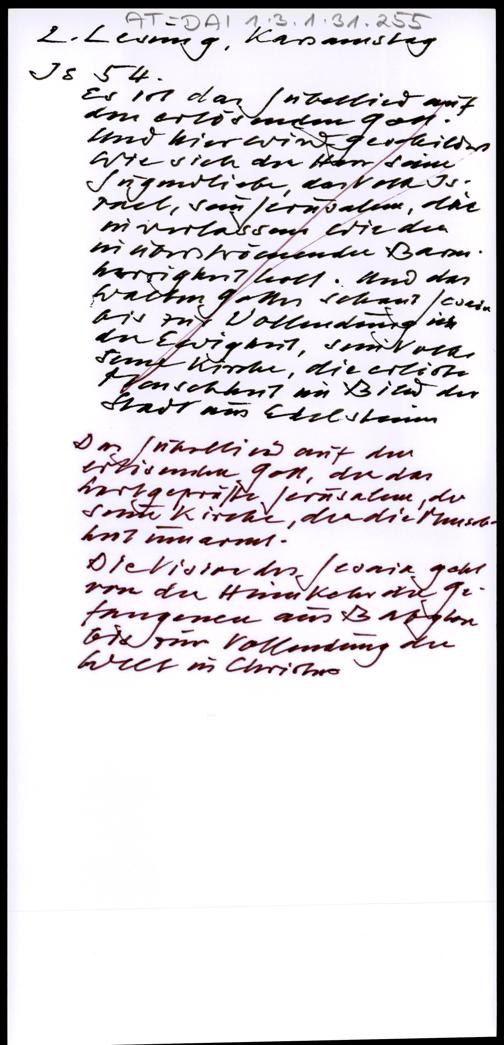 AT-DAI 1.3.1.31.255
2. Lesung, Karsamstag
Is 54.
Es ist das Jubellied auf
den erlösenden Gott.
Und hier wird geschildert
wie sich der Herr seine
Jugendliebe, das Volk Is-
rael, sein Jerusalem, die
in überströmender Barm-
herzigkeit holt. Und das
Walten Gottes schaut Jesaia
bis zur Vollendung in
der Ewigkeit, sein Volk
seine Kirche, die erlöste
Menschheit im Bild der
Stadt aus Edelsteinen
Das Jubellied auf den
erlösenden Gott, der das
hartgeprüfte Jerusalem, der
seine Kirche, der die Mensch-
heit umarmt.
Die Vision des Jesaia geht
von der Heimkehr der Ge-
fangenen aus Babylon
bis zur Vollendung der
Welt in Christus